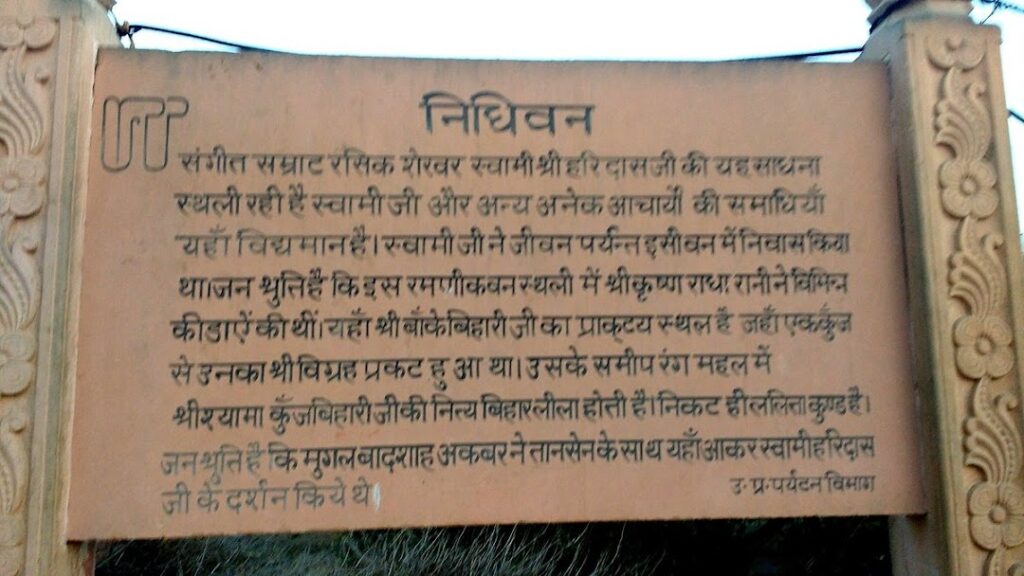 निधिवन
संगीत सम्राट रसिक शेरवर स्वामी श्री हरिदासजी की यह साधना
स्थली रही है स्वामी जी और अन्य अनेक आचार्यो की समाधियाँ
यहाँ विद्यमान है। स्वामी जी ने जीवन पर्यन्त इसी वन में निवास किया
था। जन श्रुति है कि इस रमणीक वन स्थली में श्री कृष्ण राधा रानी ने विभिन्न
कीडाऐं की थीं। यहाँ श्री बाँके बिहारी जी का प्राकट्य स्थल है जहाँ एक कुँज
से उनका श्री विग्रह प्रकट हुआ था। उसके समीप रंग महल में
श्री श्यामा कुँज बिहारी जी की नित्य बिहार लीला होती है। निकट ही ललिता कुण्ड है।
जन श्रुति है कि मुगल बादशाह अकबर ने तानसेन के साथ यहाँ आकर स्वामी हरिदास
जी के दर्शन किये थे
उ·प्र·पर्यटन विभाग